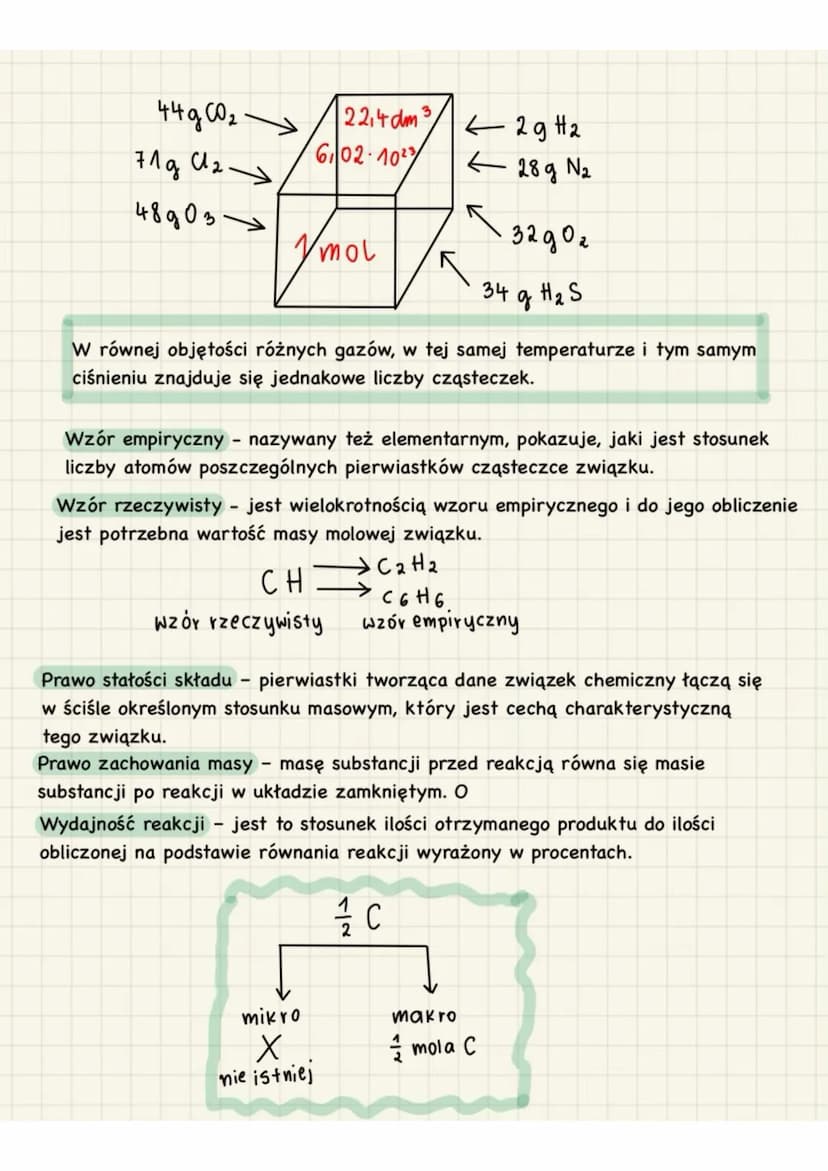 44g CO₂
71g Cl₂
48g O₃
22,4 dm³
6,02·10²³
1 mol
2g H₂
28g N₂
32g O₂
34g H₂S
W równej objętości różnych gazów, w tej samej temperaturze i tym samym
ciśnieniu znajduje się jednakowe liczby cząsteczek.
Wzór empiryczny - nazywany też elementarnym, pokazuje, jaki jest stosunek
liczby atomów poszczególnych pierwiastków cząsteczce związku.
Wzór rzeczywisty - jest wielokrotnością wzoru empirycznego i do jego obliczenie
jest potrzebna wartość masy molowej związku.
CH → C₂H₂
→ C₆H₆
wzór rzeczywisty wzór empiryczny
Prawo stałości składu - pierwiastki tworząca dane związek chemiczny łączą się
w ściśle określonym stosunku masowym, który jest cechą charakterystyczną
tego związku.
Prawo zachowania masy - masę substancji przed reakcją równa się masie
substancji po reakcji w układzie zamkniętym. O
Wydajność reakcji - jest to stosunek ilości otrzymanego produktu do ilości
obliczonej na podstawie równania reakcji wyrażony w procentach.
½ C
mikro makro
X ½ mola C
nie istniej